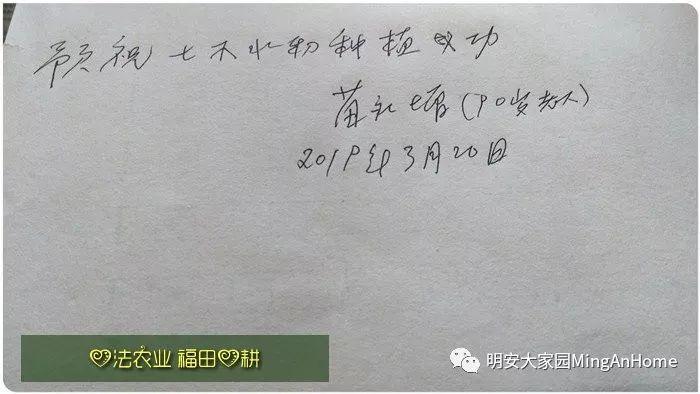 预祝七不农物种植成功
苗永 (90岁老人)
2019年3月20日
法农业 福田 耕
明安大家园MingAnHome